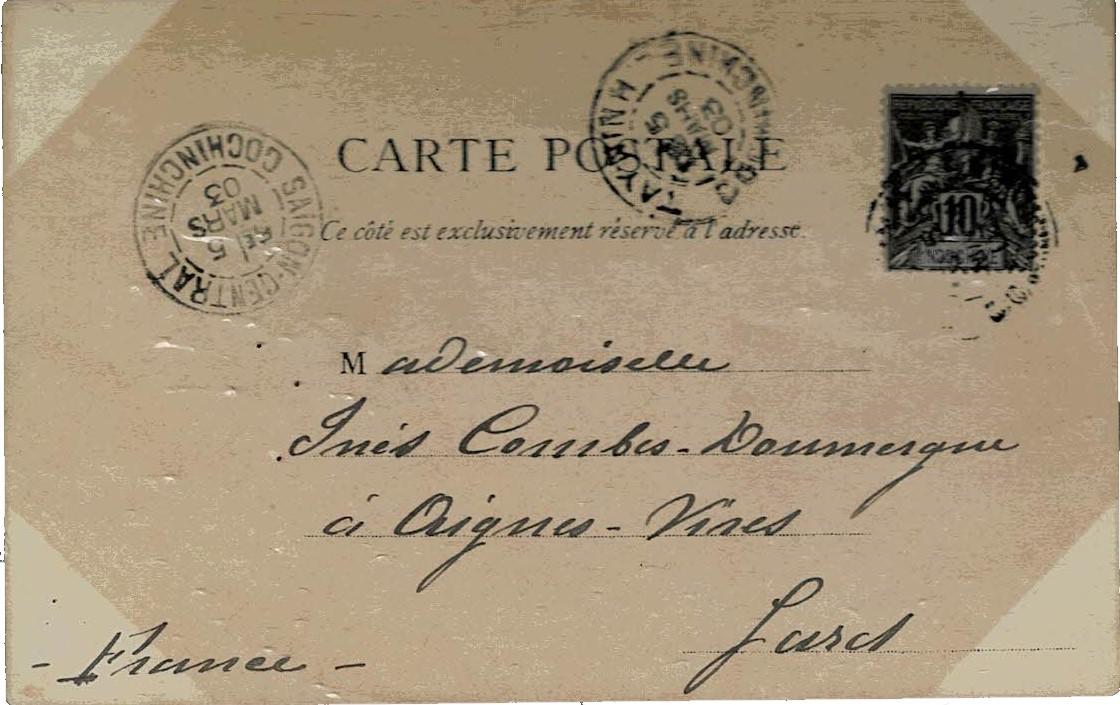 CARTE POSTALE
Ce côté est exclusivement réservé à l'adresse.
SAIGON-CENTRAL
COCHINCHINE
5
MARS
03
TAYNINH - COCHINCHINE
5
MARS
03
REPUBLIQUE FRANÇAISE
10
Mademoiselle
Inés Combes-Doumergue
à Aigues-Vives
Gard
- France -